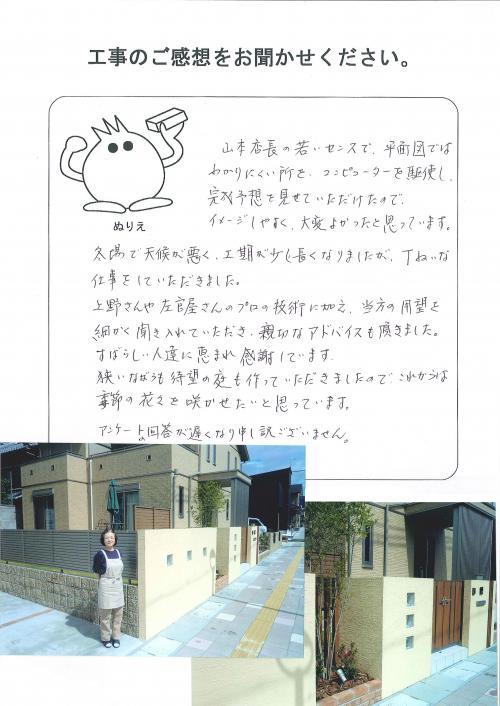 工事のご感想をお聞かせください。
山本店長の若いセンスで、平面図では
わかりにくい所を、コンピューターを駆使し、
完成予想を見せていただけたので、
イメージしやすく、大変よかったと思っています。
ぬりえ
冬場で天候が悪く、工期が少し長くなりましたが、丁ねいな
仕事をしていただきました。
上野さんや左官屋さんのプロの技術に加え、当方の用望を
細かく聞き入れていただき、親切なアドバイスも頂きました。
すばらしい人達に恵まれ感謝しています。
狭いながらも待望の庭も作っていただきましたので、これからは
季節の花々を咲かせたいと思っています。
アンケートの回答が遅くなり申し訳ございません。